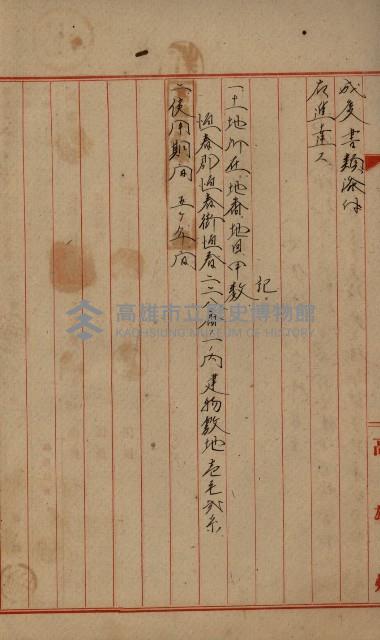 成度書類添付
右進達ス
記
一土地所在地番地目甲数
恆春郡恆春街恆春二二八番ノ一ノ内建物敷地壱毛弐糸
二使用期間 五ケ年間
高雄州
高雄市立歷史博物館
KAOHSIUNG MUSEUM OF HISTORY